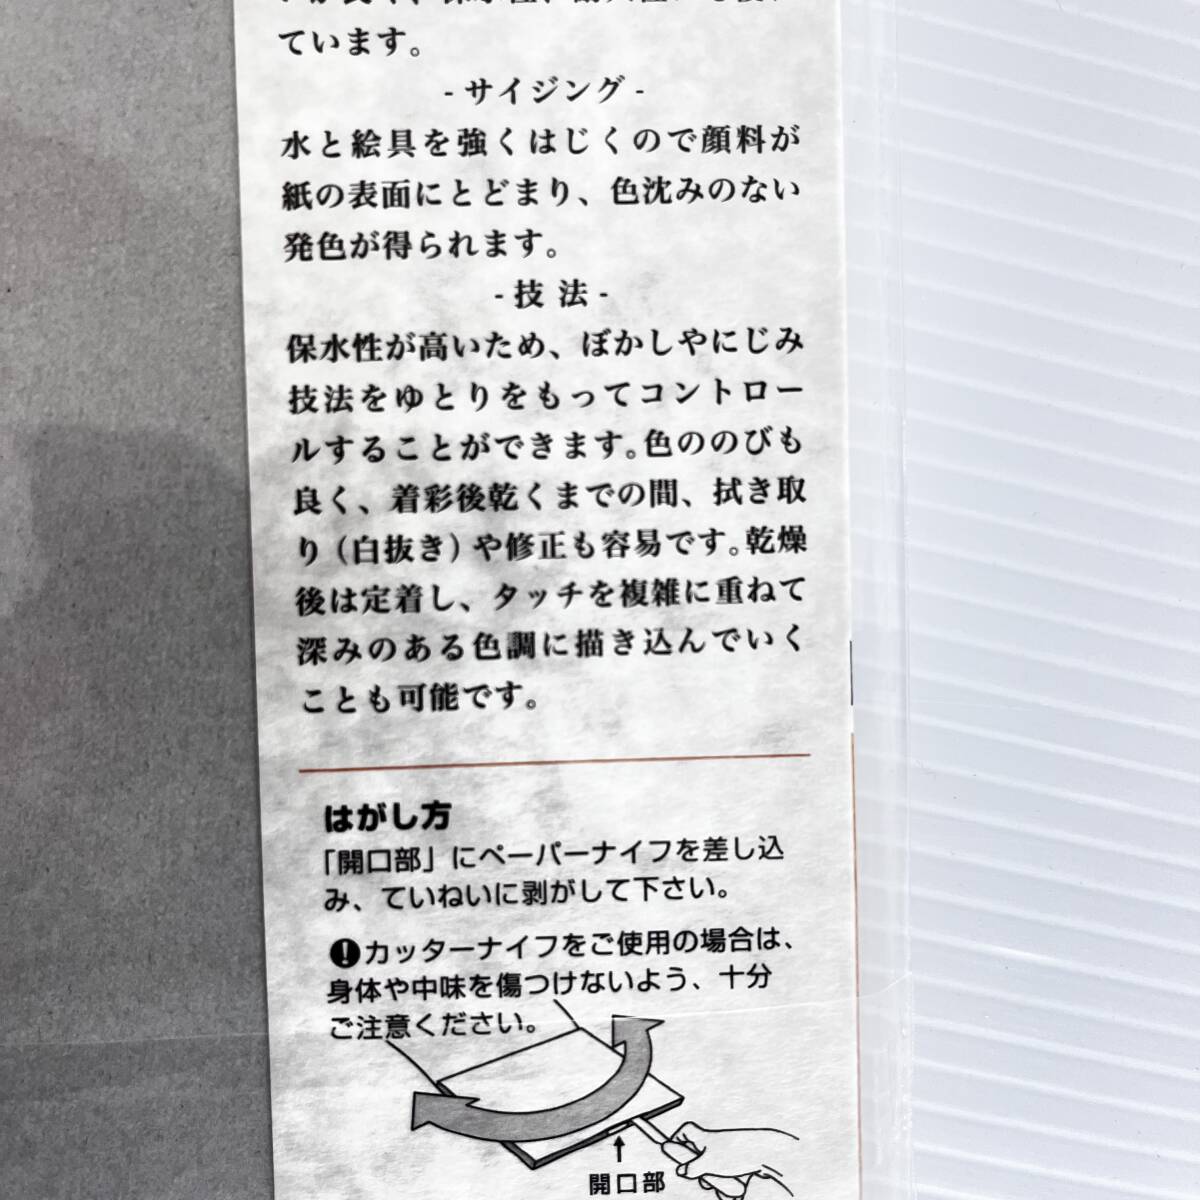 ています。
- サイジング -
水と絵具を強くはじくので顔料が
紙の表面にとどまり、色沈みのない
発色が得られます。
- 技 法 -
保水性が高いため、ぼかしやにじみ
技法をゆとりをもってコントロー
ルすることができます。色ののびも
良く、着彩後乾くまでの間、拭き取
り（白抜き）や修正も容易です。乾燥
後は定着し、タッチを複雑に重ねて
深みのある色調に描き込んでいく
ことも可能です。
はがし方
「開口部」にペーパーナイフを差し込
み、ていねいに剥がして下さい。
!カッターナイフをご使用の場合は、
身体や中味を傷つけないよう、十分
ご注意ください。
開口部